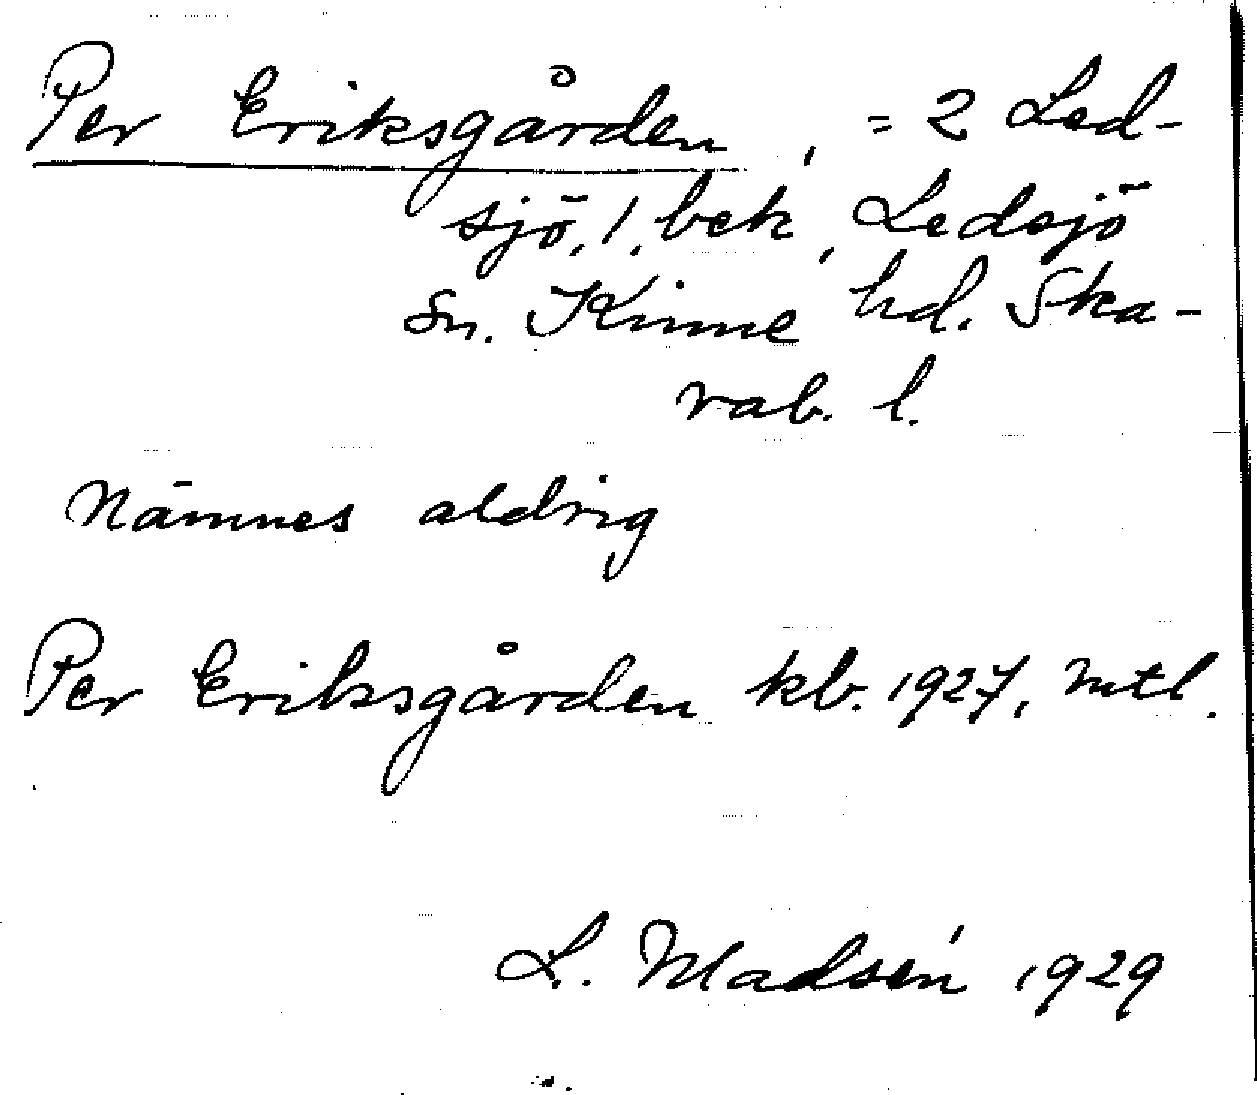 Per Eriksgården, = 2 Led-
sjö, 1, bek, Ledsjö
sn. Kinne hd. Ska-
rab. l.
Nämnes aldrig
Per Eriksgården kb. 1927, mtl.
L. Madsén 1929